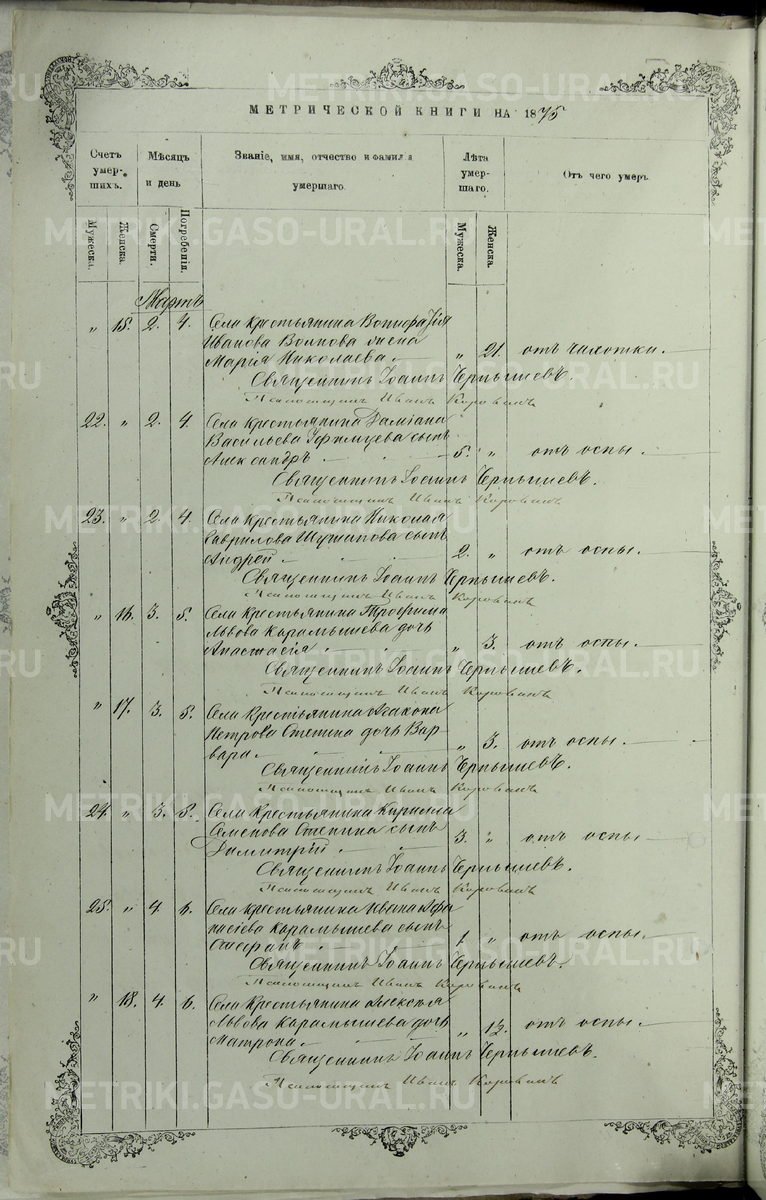 МЕТРИЧЕСКОЙ КНИГИ НА 1875
Счетъ умерших. Мѣсяцъ и день Званіе, имя, отчество и фамилія умершаго. Лѣта умершаго. Отъ чего умеръ.
Мужеска. Женска. Смерти. Погребенія. Мужеска. Женска.
Мартъ
„ 15. 2. 4. Села крестьянина Вонифатія
Иванова Волкова жена
Марія Николаева. „ 21. отъ чахотки.
Священникъ Іоаннъ Чернышевъ.
Псаломщикъ Иванъ
22. „ 2. 4. Села крестьянина Даміана
Васильева сынъ
Александръ 5. „ отъ оспы.
Священникъ Іоаннъ Чернышевъ.
Псаломщикъ Иванъ
23. „ 2. 4. Села крестьянина Николая
Гаврилова сынъ
Андрей 2. „ отъ оспы.
Священникъ Іоаннъ Чернышевъ.
Псаломщикъ Иванъ
„ 16. 3. 5. Села крестьянина Трофима
Львова Карамышева дочь
Анастасія „ 3. отъ оспы.
Священникъ Іоаннъ Чернышевъ.
Псаломщикъ Иванъ
„ 17. 3. 5. Села крестьянина
Петрова Степина дочь Вар-
вара. „ 3. отъ оспы.
Священникъ Іоаннъ Чернышевъ.
Псаломщикъ Иванъ
24. „ 3. 5. Села крестьянина Кирилла
Семенова Степина сынъ
Димитрій 3. „ отъ оспы.
Священникъ Іоаннъ Чернышевъ.
Псаломщикъ Иванъ
25. „ 4. 6. Села крестьянина Ивана Афа
насіева Карамышева сынъ
Стефанъ 1. „ отъ оспы.
Священникъ Іоаннъ Чернышевъ.
Псаломщикъ Иванъ
„ 18. 4. 6. Села крестьянина Алексѣя
Львова Карамышева дочь
Матрона. „ 12. отъ оспы.
Священникъ Іоаннъ Чернышевъ.
Псаломщикъ Иванъ
METRIKI.GASO-URAL.RU